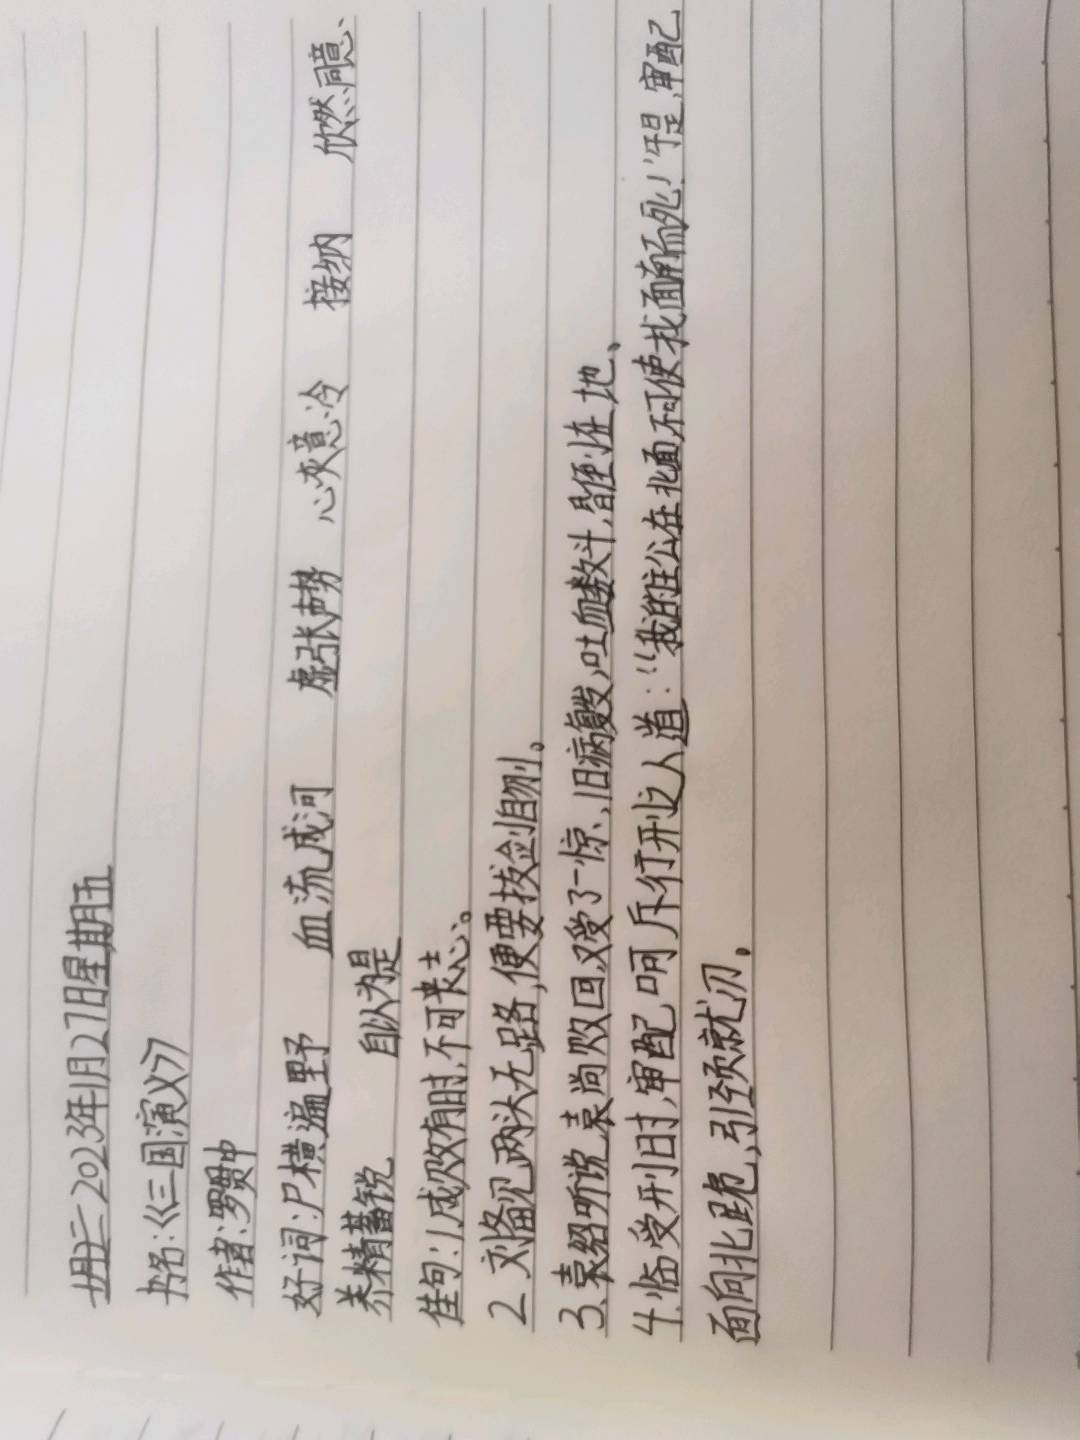 2023年1月27日星期五
书名:《三国演义》
作者:罗贯中
好词:尸横遍野 血流成河 虚张声势 心灰意冷 接纳 欣然同意、
养精蓄锐 自以为是
佳句:1、成败有时,不可丧志。
2、刘备见两头无路,便要拔剑自刎。
3、袁绍听说袁尚败回,又受了一惊,旧病复发,吐血数斗,昏倒在地、
4、临受刑时,审配呵斥行刑之人道:“我的主公在北面,不可使我面南而死!”于是,审配
面向北跪,引颈就刃。